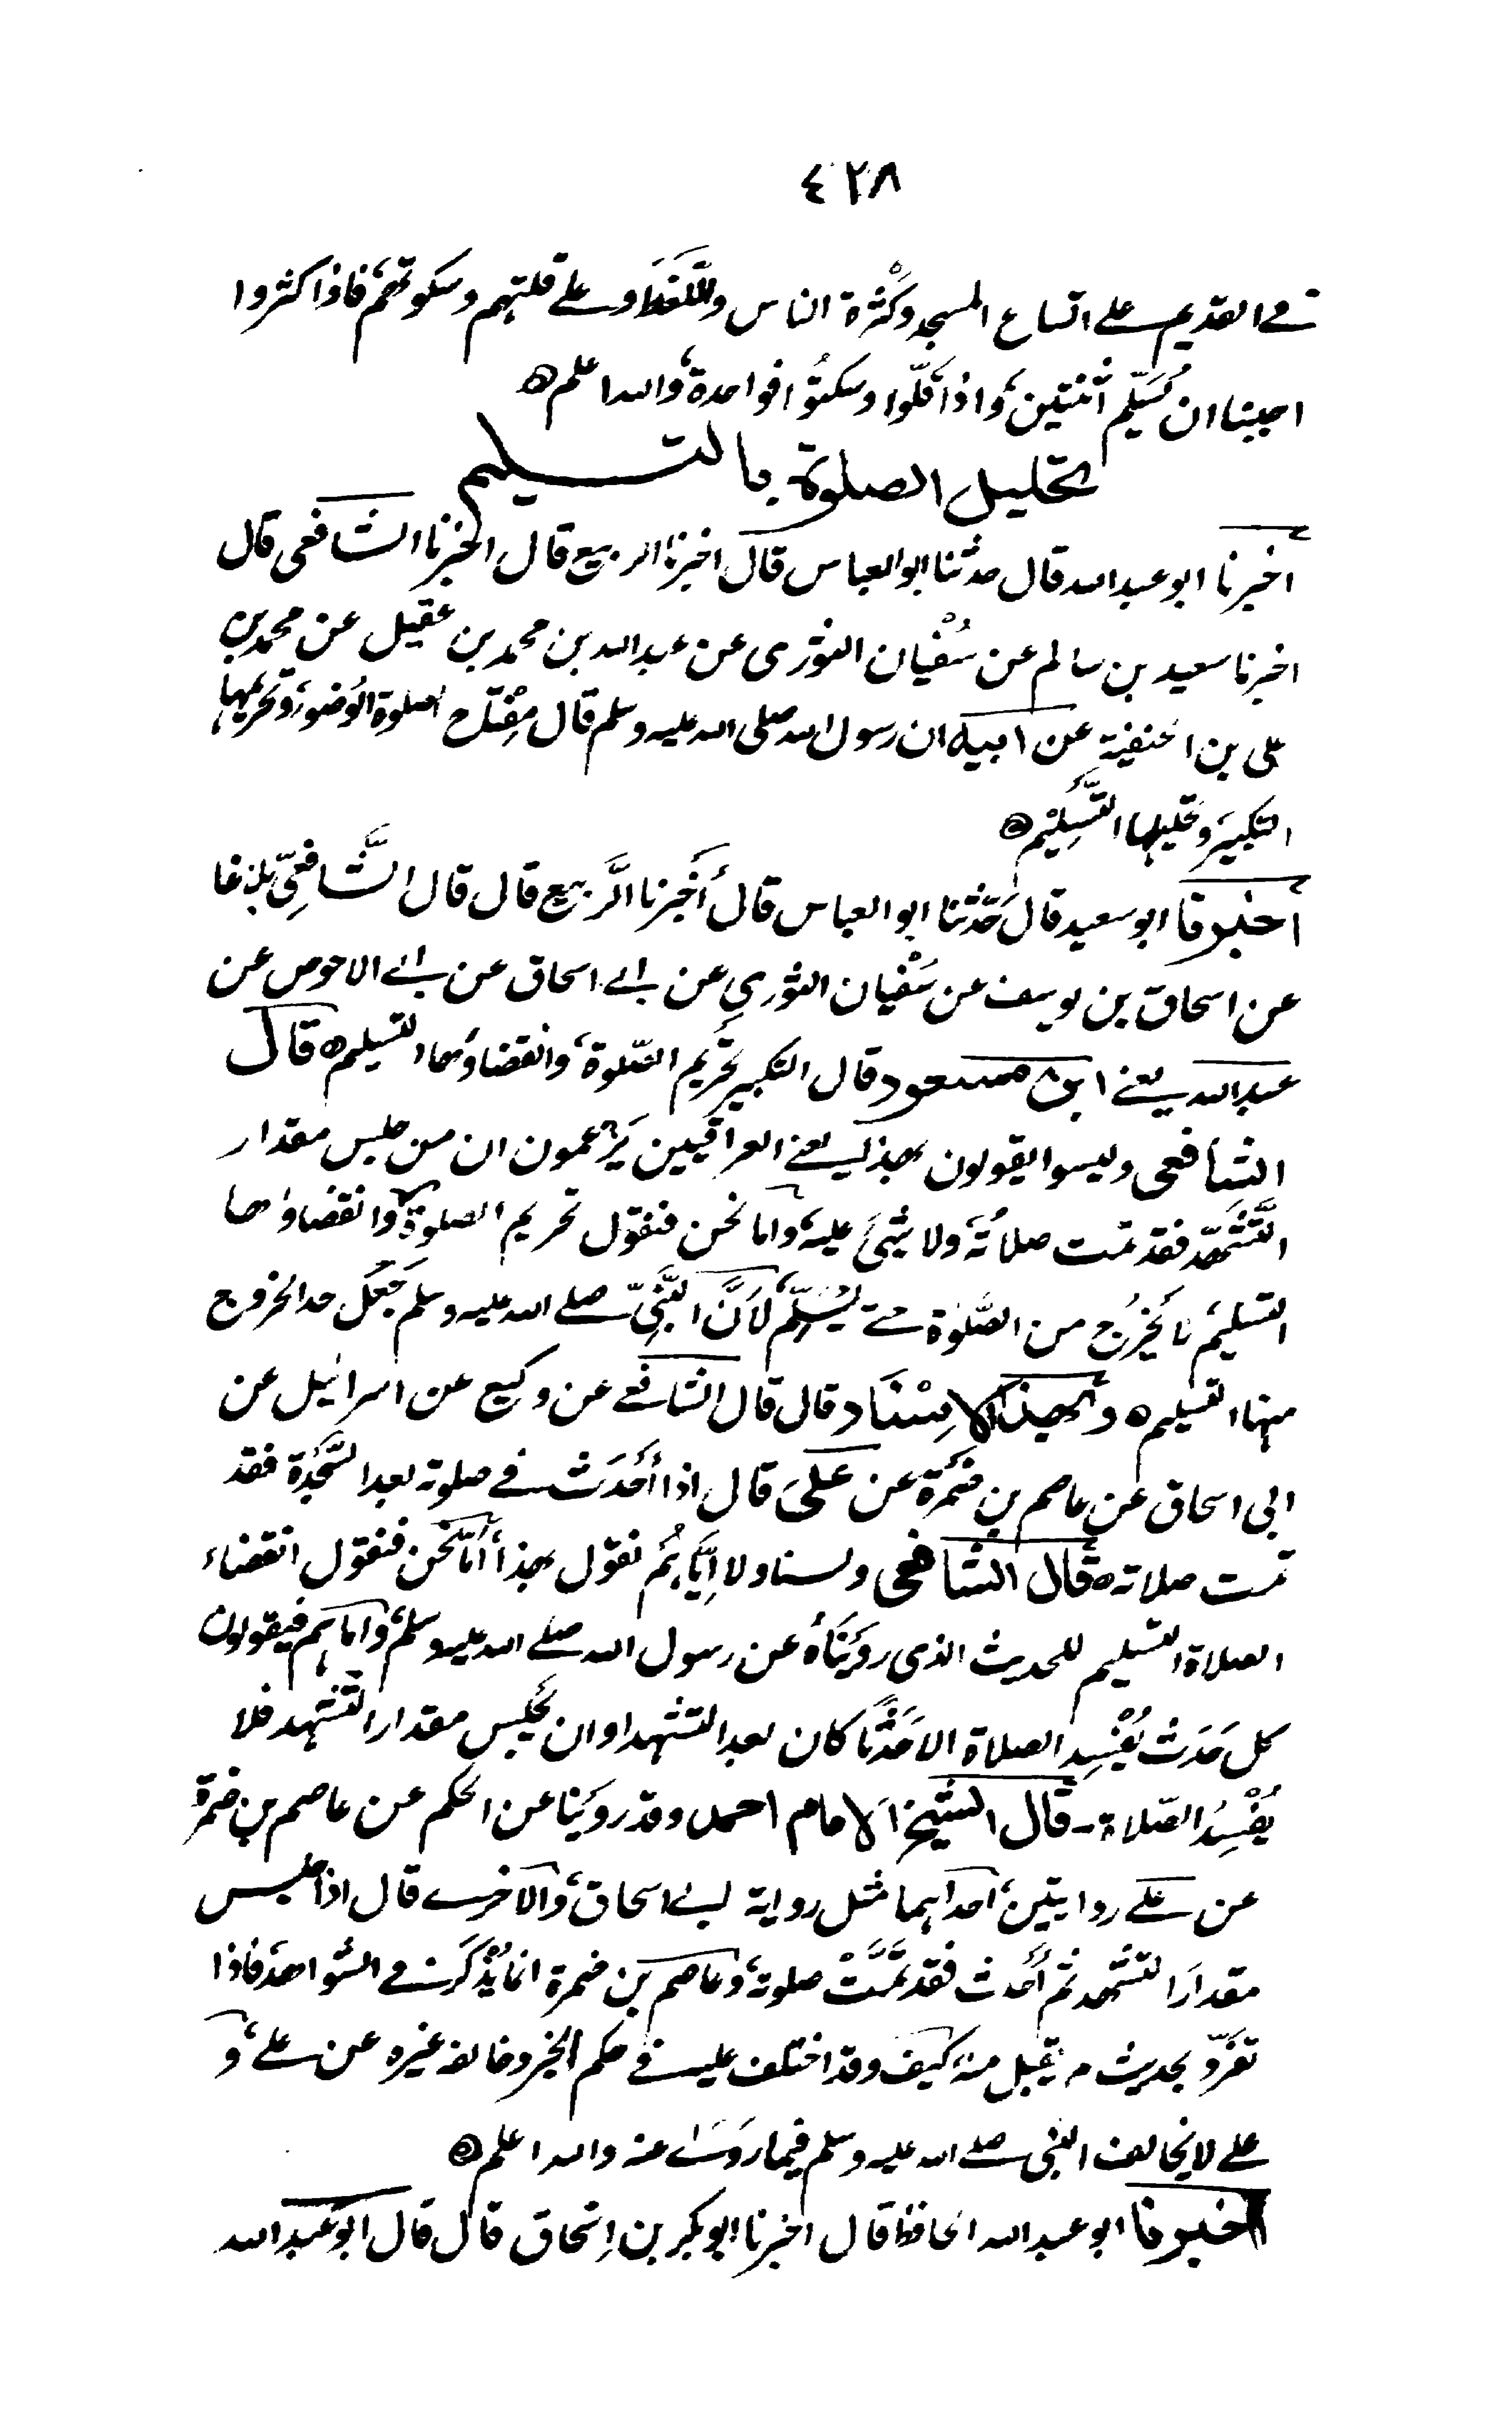 ٤٢٨
في القديم على اتساع المسجد وكَثْرة الناس واللَّغَط وعلى قلتهم وسكوتهم، فاذا كثروا
احببنا ان يُسَلِّم اثنتين، واذا قَلّوا وسكتُوا فواحدة، والله اعلم ه
تحليل الصلوة بالتسليم
اخبرنا ابو عبد الله قال حدثنا ابو العباس قال اخبرنا الربيع قال اخبرنا الشافعى قال
اخبرنا سعيد بن سالم عن سُفْيان الثورى عن عبد الله بن محمد بن عقيل عن محمد بن
على بن الحنفية عن ابيه ان رسول الله صلى الله عليه وسلم قال مِفْتاح الصلوة الوُضوء، وتحريمها
التكبير وتحليلها التَّسْلِيْم ه
اخبرنا ابو سعيد قال حَدَّثنا ابو العباس قال أَخْبرنا الرَّبيع قال قال الشَّافِعِيّ بلاغا
عن اسحاق بن يوسف عن سُفْيان الثوري عن ابى اسحاق عن ابى الاحوص عن
عبد الله يعنى ابن مسعود قال التكبير تحْريم الصّلوة، وانقضاؤها التسليم ه قال
الشافعى وليسوا يقولون بهذا يعنى العراقيين يَزْعمون ان من جلس مقدار
التَّشَهّد فقد تمت صلاتُه، ولا شئَ عليه، واما نحن فنقول تحريم الصلوة، وانقضاؤها
التسليم لا يَخْرُج من الصَّلٰوة حتى يُسَلِّم، لأَنَّ النَّبِيّ صلى الله عليه وسلم جَعَل حد الخروج
منها التسليم ه وبهذا الاِسْنَاد قال قال الشافعى عن وكيع عن اسرائيل عن
ابى اسحاق عن عاصم بن ضَمْرَة عن عَلِىّ قال اذا أَحْدَث فى صلوته بعد السَّجْدَة فقد
تمت صلاته ه قال الشافعى ولسنا ولا اِيَّاهُم نقول بهذا، أَمَّا نَحْن فنقول انقضاء
الصلاة التسليم للحديث الذى رَوَيْنَاهُ عن رسول الله صلى الله عليه وسلم، واما هم فيقولون
كل حَدَث يُفْسِد الصلاة الا حَدَثًا كان بعد التشهد او ان يَجْلِس مقدار التشهد فلا
يُفْسِدُ الصّلاة - قال الشيخ الامام احمد وقد روَيْنا عن الحكم عن عاصم بن ضمرة
عن على روايتين، احداهما مثل رواية ابى اسحاق، والاخرى قال اذا جلس
مقدارَ التشهد ثم أَحْدث فقد تَمَّتْ صلوته، وعاصم بن ضمرة انما يُذْكَر فى الشواهد، فاذا
تفرّد بحديث لم يقبل منه، كيف وقد اختلف عليه فى حكم الخبر وخالفه غيره عن على، و
على لا يخالف النبى صلى الله عليه وسلم فيما رَوى عنه والله اعلم ه
اخبرنا ابو عبد الله الحافظ قال اخبرنا ابو بكر بن اِسْحاق قال قال ابو عبد الله